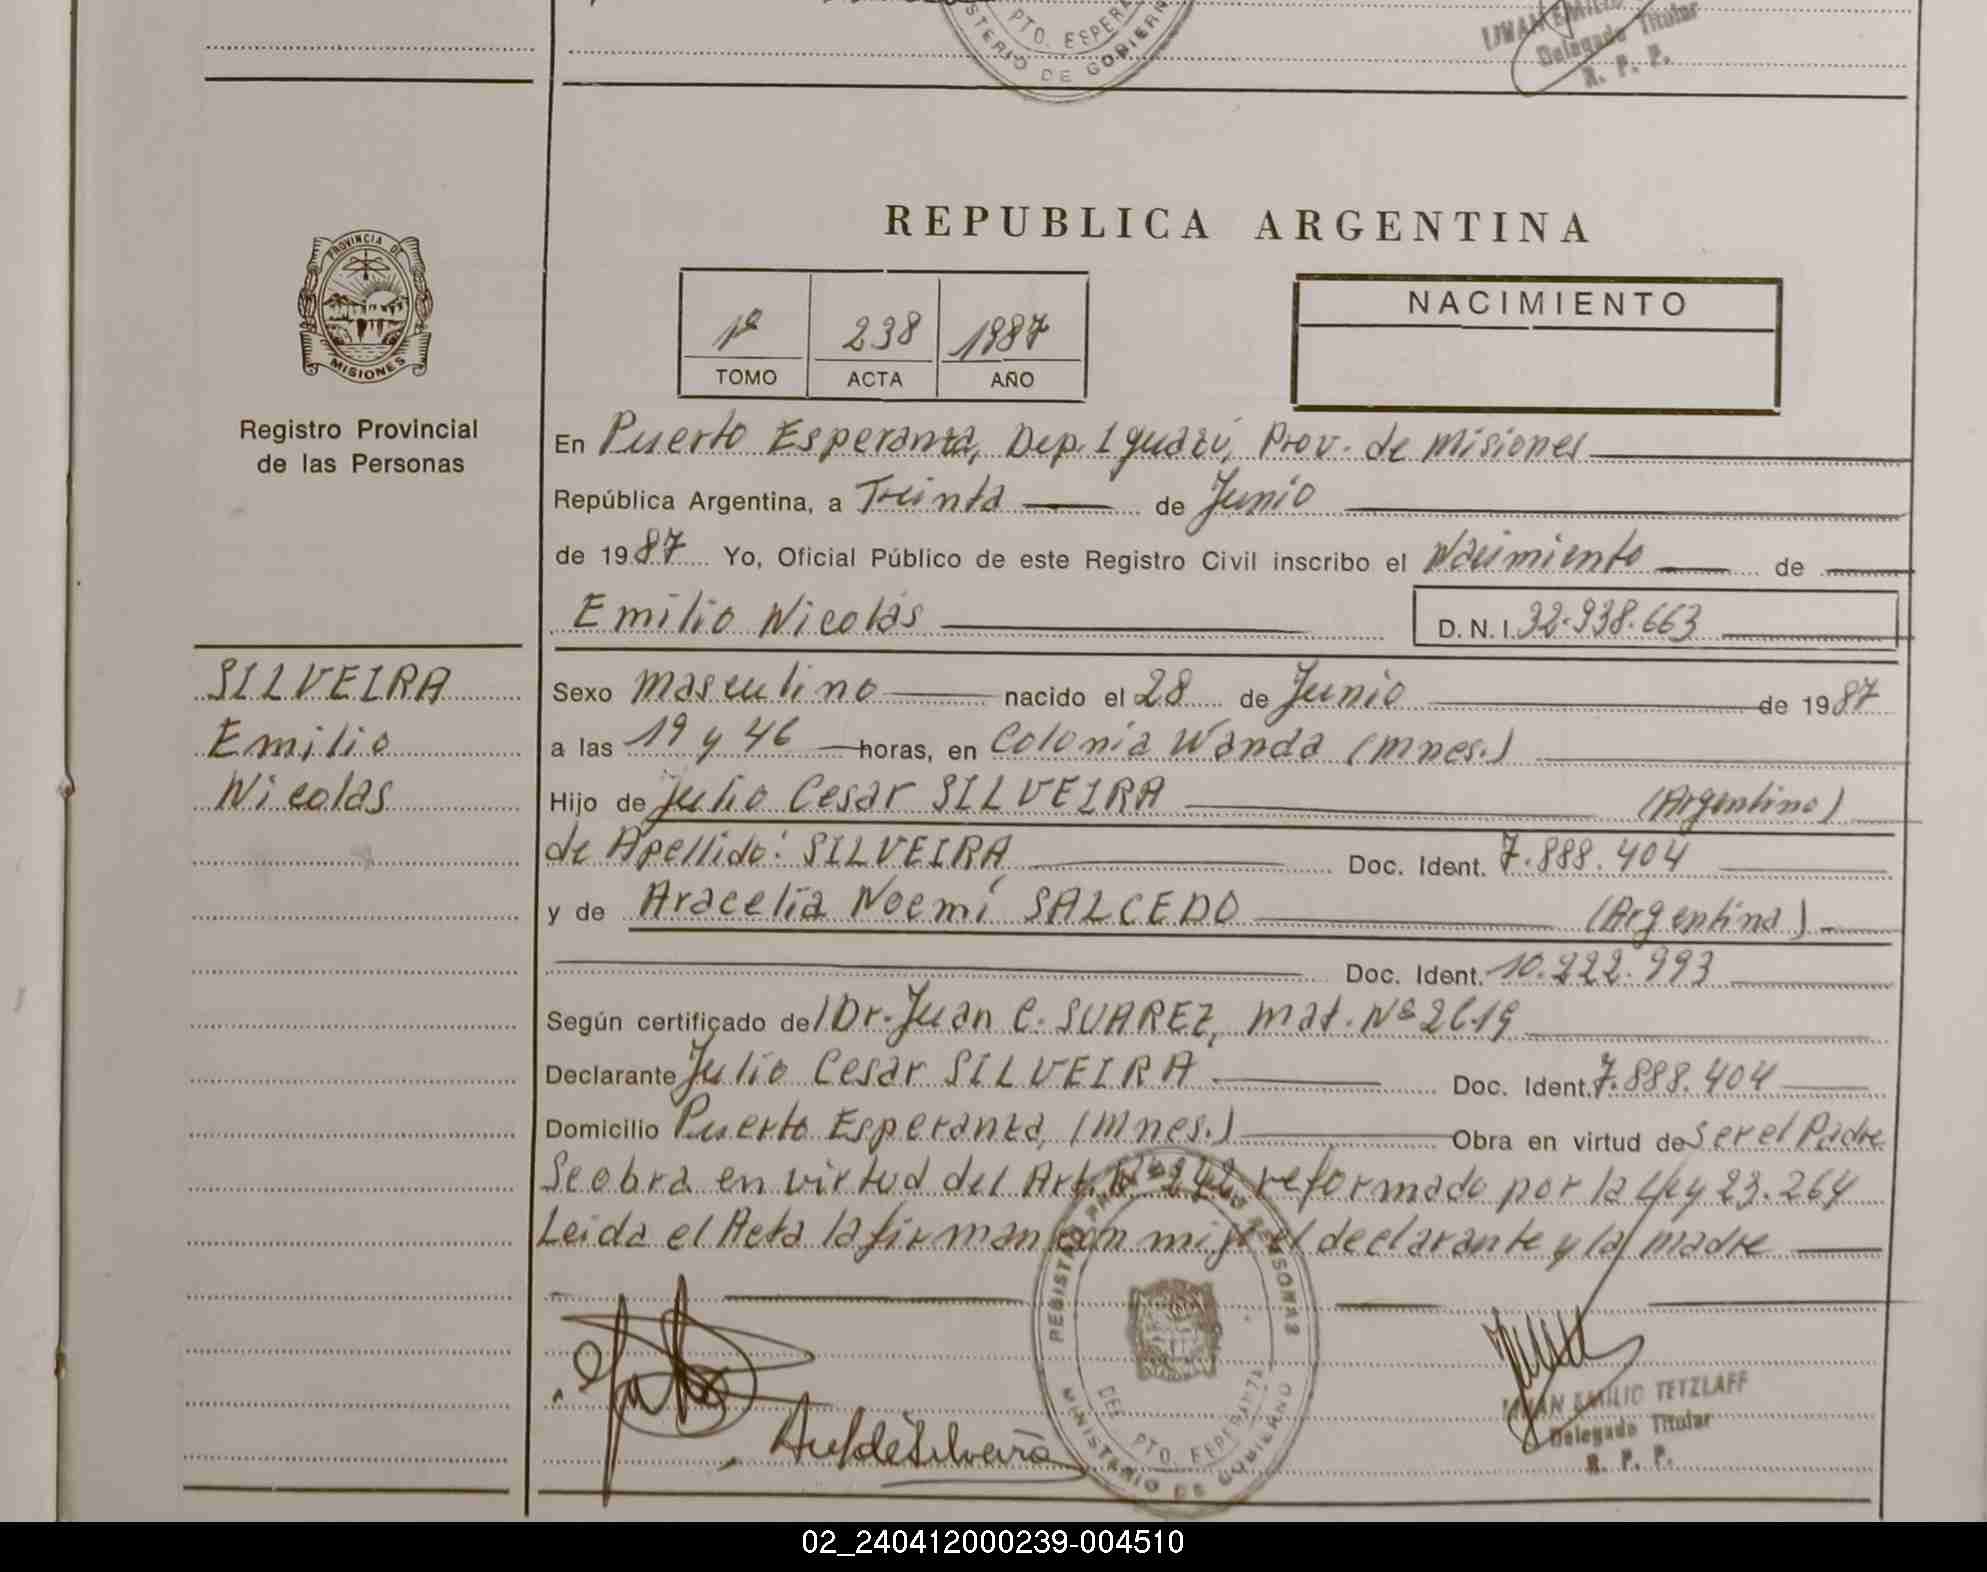 PTO. ESPERA
STERIO DE GOBIERN
Delegado Titular
R. P. P.
PROVINCIA DE
MISIONES
Registro Provincial
de las Personas
REPUBLICA ARGENTINA
1º 238 1987
TOMO ACTA AÑO
NACIMIENTO
En Puerto Esperanza, Dep. Iguazú, Prov. de Misiones
República Argentina, a Treinta de Junio
de 1987 Yo, Oficial Público de este Registro Civil inscribo el Nacimiento de
Emilio Nicolás D.N.I. 32.938.663
SILVEIRA
Emilio
Nicolas
Sexo masculino nacido el 28 de Junio de 1987
a las 19 y 46 horas, en Colonia Wanda (Mnes.)
Hijo de Julio Cesar SILVEIRA (Argentino)
de Apellido: SILVEIRA Doc. Ident. 7.888.404
y de Aracelia Noemí SALCEDO (Argentina)
Doc. Ident. 10.222.993
Según certificado del Dr. Juan C. SUAREZ, Mat. Nº 2619
Declarante Julio Cesar SILVEIRA Doc. Ident. 7.888.404
Domicilio Puerto Esperanza, (Mnes.) Obra en virtud de Ser el Padre
Se obra en virtud del Art. Nº 242, reformado por la Ley 23.264
Leida el Acta la firman con migo el declarante y la madre
de Silveira
REGISTRO PERSONAS
DEL. PTO. ESPERANZA
MINISTERIO DE GOBIERNO
EMILIO TETZLAFF
Delegado Titular
R. P. P.
02_240412000239-004510